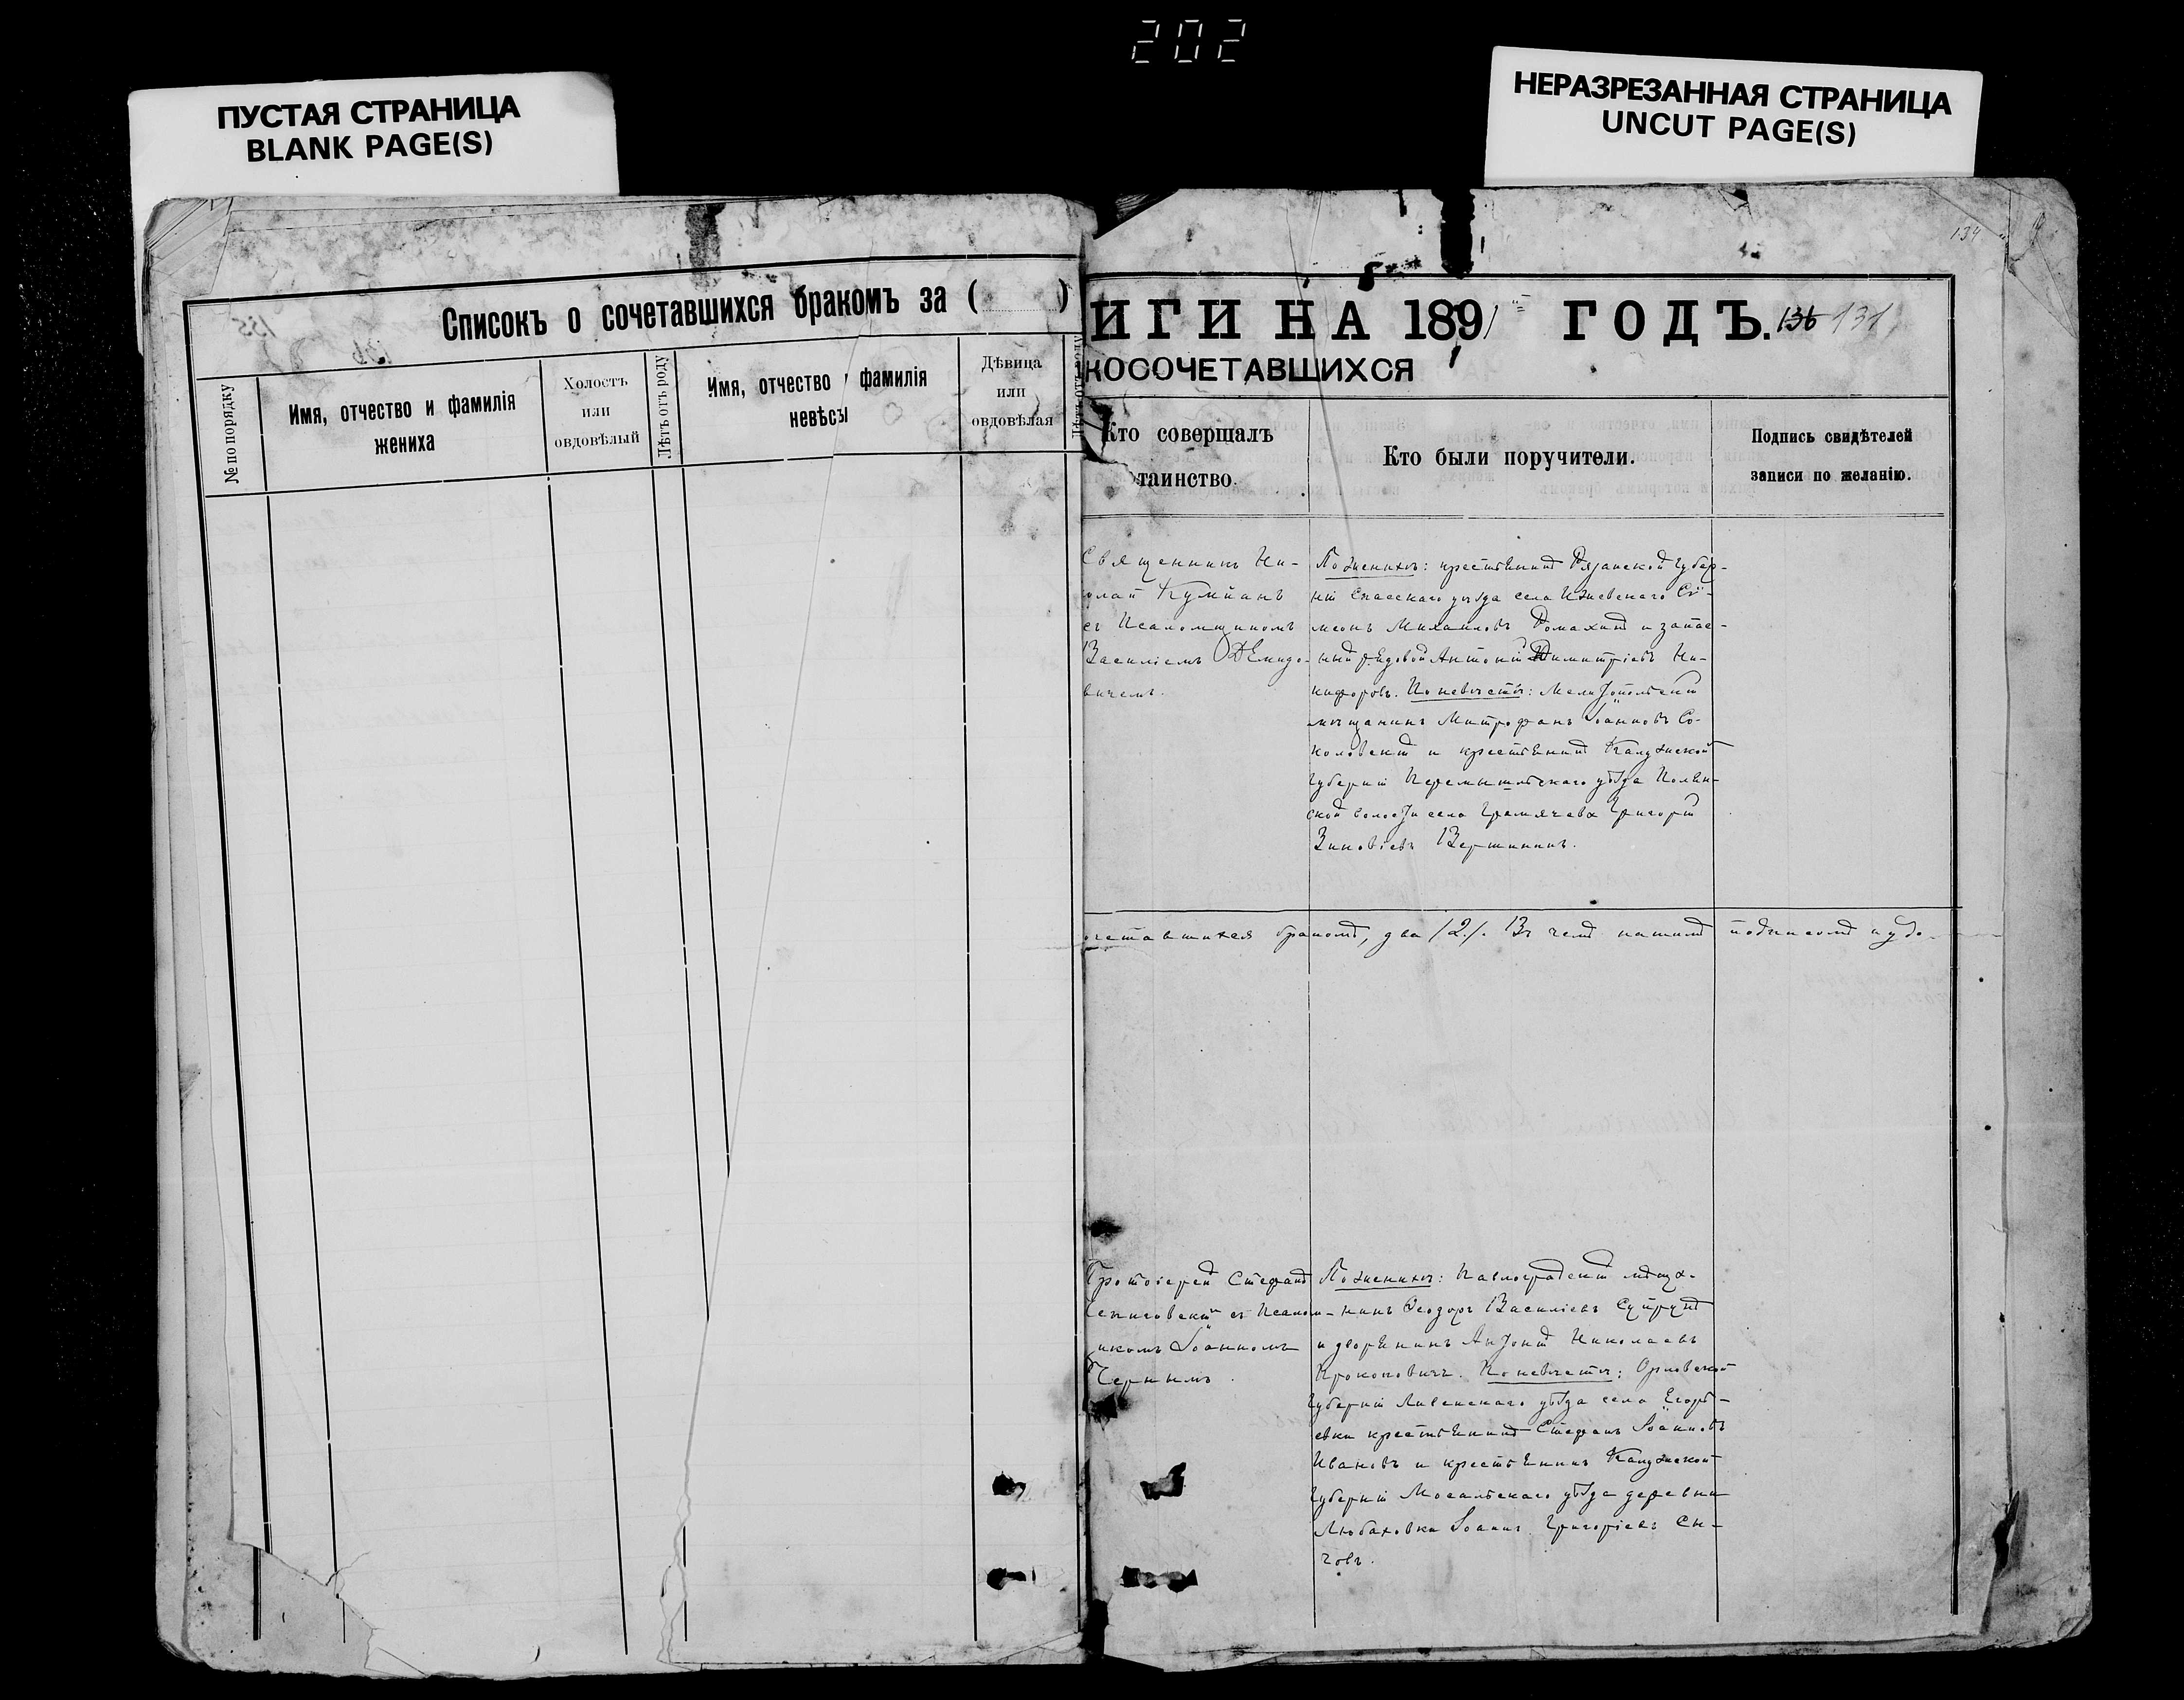 202
ПУСТАЯ СТРАНИЦА
BLANK PAGE(S)
НЕРАЗРЕЗАННАЯ СТРАНИЦА
UNCUT PAGE(S)
Списокъ о сочетавшихся бракомъ за ( )
№ по порядку
Имя, отчество и фамилія
жениха
Холостъ
или
овдовѣлый
Лѣтъ отъ роду
Имя, отчество и фамилія
невѣсы
Дѣвица
или
овдовѣлая
Лѣтъ отъ роду
134
ИГИ НА 1891 ГОДЪ.
136 131
КОСОЧЕТАВШИХСЯ
Кто совершалъ
таинство.
Кто были поручители.
Подпись свидѣтелей
записи по желанію.
Священникъ Ни-
колай
съ Псаломщикомъ
Василіемъ Демидо-
вичемъ.
По женихѣ: крестьянинъ Рязанской губер-
ніи Спасскаго уѣзда села Ижевскаго Си-
меонъ Михаиловъ Ромахинъ и запас-
ный рядовой Антоній Димитріевъ Ни-
кифоровъ. По невѣстѣ: Мелитопольскій
мѣщанинъ Митрофанъ Іоанновъ Со-
коловскій и крестьянинъ Калужской
губерніи Перемышльскаго уѣзда
ской волости села Гремячева Григорій
Зиновіевъ Вершининъ.
очетавшихся бракомъ, два /2/. Въ чемъ нашимъ подписомъ и удо-
Протоіерей Стефанъ
съ Псалом-
щикомъ Іоанномъ
Чернымъ.
По женихѣ: Павлоградскій мѣща-
нинъ Ѳеодоръ Василіевъ Супрунъ
и дворянинъ Антоній Николаевъ
Прокоповичъ. По невѣстѣ: Орловской
губерніи Ливенскаго уѣзда села Егорь-
евки крестьянинъ Стефанъ Іоанновъ
Ивановъ и крестьянинъ Калужской
губерніи Мосальскаго уѣзда деревни
Любаховки Іоаннъ Григоріевъ Сы-
човъ.